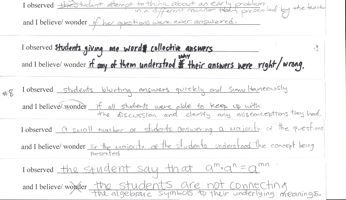 I observed the student attempt to think about an early problem
in a different manner than presented by the teacher
and I believe/ wonder if her questions were ever answered.
I observed students giving me word collective answers
and I believe/ wonder if any of them understood why their answers were right/wrong.
#8 I observed students blurting answers quickly and simultaneously
and I believe/ wonder if all students were able to keep up with
the discussion and clarify any misconceptions they had.
I observed a small number of students answering a majority of the questions
and I believe/ wonder if the majority of the students understood the concept being
presented
I observed the student say that aᵐ·aⁿ = aᵐⁿ
and I believe/ wonder the students are not connecting
the algebraic symbols to their underlying meanings.